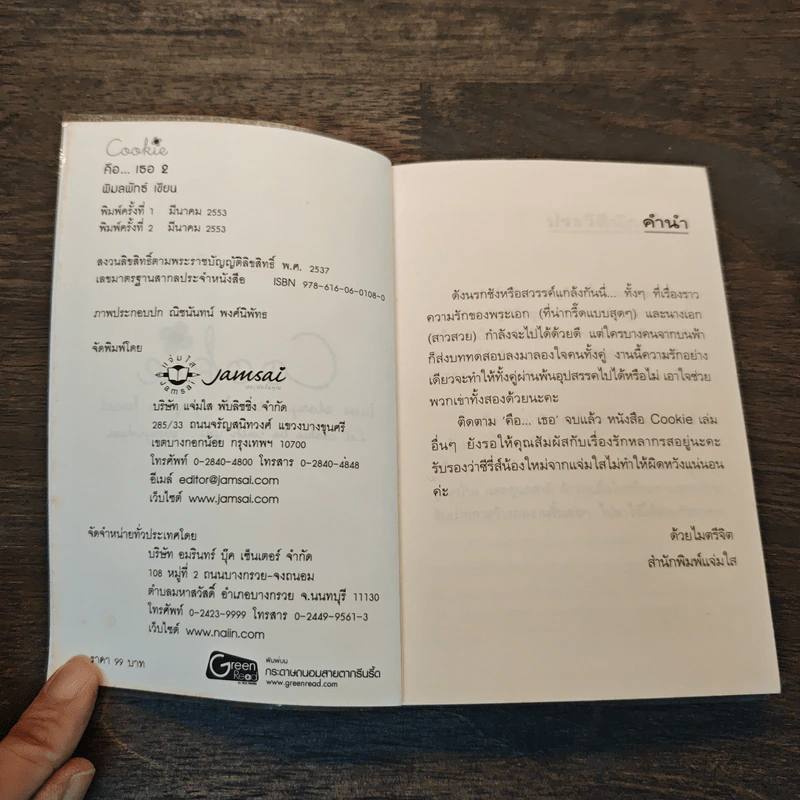 Cookie
คือ... เธอ 2
พิมลพัทธ์ เขียน
พิมพ์ครั้งที่ 1 มีนาคม 2553
พิมพ์ครั้งที่ 2 มีนาคม 2553
สงวนลิขสิทธิ์ตามพระราชบัญญัติลิขสิทธิ์ พ.ศ. 2537
เลขมาตรฐานสากลประจำหนังสือ ISBN 978-616-06-0108-0
ภาพประกอบปก ณิชนันทน์ พงศ์นิพัทธ
จัดพิมพ์โดย
แจ่มใส
Jamsai
Jamsai
บริษัท แจ่มใส พับลิชชิ่ง จำกัด
285/33 ถนนจรัญสนิทวงศ์ แขวงบางขุนศรี
เขตบางกอกน้อย กรุงเทพฯ 10700
โทรศัพท์ 0-2840-4800 โทรสาร 0-2840-4848
อีเมล์ editor@jamsai.com
เว็บไซต์ www.jamsai.com
จัดจำหน่ายทั่วประเทศโดย
บริษัท อมรินทร์ บุ๊ค เซ็นเตอร์ จำกัด
108 หมู่ที่ 2 ถนนบางกรวย-จงถนอม
ตำบลมหาสวัสดิ์ อำเภอบางกรวย จ.นนทบุรี 11130
โทรศัพท์ 0-2423-9999 โทรสาร 0-2449-9561-3
เว็บไซต์ www.naiin.com
ราคา 99 บาท
Green Read
พิมพ์บน
กระดาษถนอมสายตากรีนรี้ด
www.greenread.com
คำนำ
ดังนรกชังหรือสวรรค์แกล้งกันนี่... ทั้งๆ ที่เรื่องราว
ความรักของพระเอก (ที่น่ากรี๊ดแบบสุดๆ) และนางเอก
(สาวสวย) กำลังจะไปได้ด้วยดี แต่ใครบางคนจากบนฟ้า
ก็ส่งบททดสอบลงมาลองใจคนทั้งคู่ งานนี้ความรักอย่าง
เดียวจะทำให้ทั้งคู่ผ่านพ้นอุปสรรคไปได้หรือไม่ เอาใจช่วย
พวกเขาทั้งสองด้วยนะคะ
ติดตาม 'คือ... เธอ' จบแล้ว หนังสือ Cookie เล่ม
อื่นๆ ยังรอให้คุณสัมผัสกับเรื่องรักหลากรสอยู่นะคะ
รับรองว่าซีรี่ส์น้องใหม่จากแจ่มใสไม่ทำให้ผิดหวังแน่นอน
ค่ะ
ด้วยไมตรีจิต
สำนักพิมพ์แจ่มใส